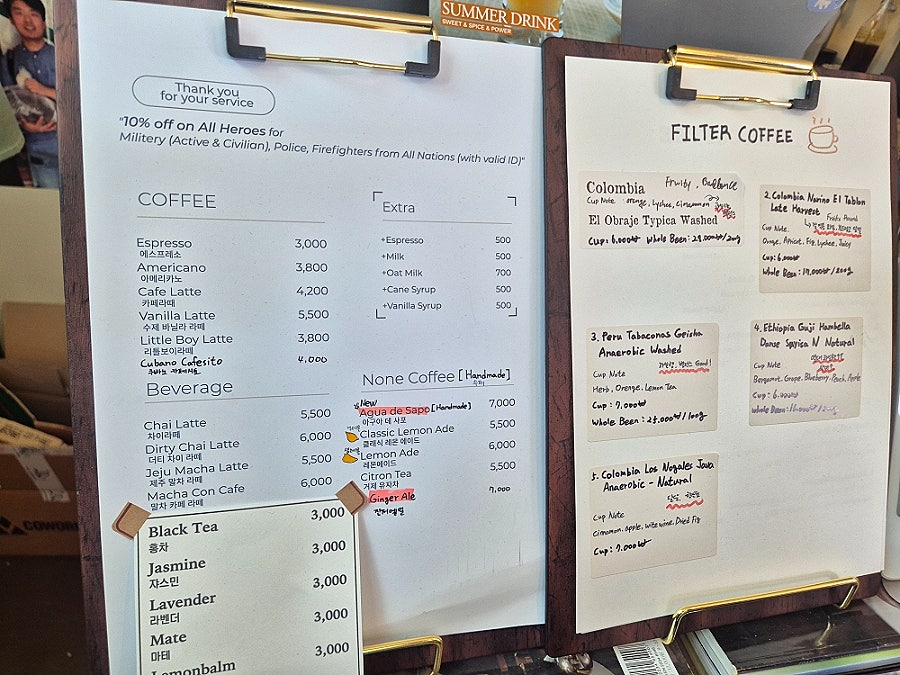 SUMMER DRINK
SWEET & SPICE & POWER
Thank you
for your service
"10% off on All Heroes for
Militery (Active & Civilian), Police, Firefighters from All Nations (with valid ID)"
COFFEE
Espresso 3,000
에스프레소
Americano 3,800
아메리카노
Cafe Latte 4,200
카페라떼
Vanilla Latte 5,500
수제 바닐라 라떼
Little Boy Latte 3,800
리틀보이라떼
Cubano Cafesito 4,000
쿠바노 카페시토
Extra
+Espresso 500
+Milk 500
+Oat Milk 700
+Cane Syrup 500
+Vanilla Syrup 500
Beverage
Chai Latte 5,500
차이라떼
Dirty Chai Latte 6,000
더티 차이 라떼
Jeju Macha Latte 5,500
제주 말차 라떼
Macha Con Cafe 6,000
말차 카페 라떼
None Coffee [Handmade]
New
Agua de Sapo [Handmade] 7,000
아구아 데 사포
Classic Lemon Ade 5,500
클래식 레몬 에이드
Lemon Ade 6,000
레몬에이드
Citron Tea 5,500
거제 유자차
Ginger Ale 7,000
진저에일
Black Tea 3,000
홍차
Jasmine 3,000
쟈스민
Lavender 3,000
라벤더
Mate 3,000
마테
Lemonbalm 3,000
COWOR
FILTER COFFEE
Colombia Fruity, Ballance
Cup Note orange, Lychee, Cinnamon
El Obraje Typica Washed
Cup: 6,000₩ Whole Been: 29,000₩/200g
2. Colombia Narino El Tablon
Late Harvest
Fruits Pound
Cup Note
Orange, Apricot, Fig, Lychee, Juicy
Cup: 6,000₩
Whole Been: 17,000₩/200g
3. Peru Tabaconas Geisha
Anaerobic Washed
Cup Note
Herb, Orenge, Lemon Tea
Cup: 7,000₩
Whole Been: 25,000₩/100g
4. Ethiopia Guji Hambella
Danse Spyica N Natural
Cup Note
Bergamot, Grape, Blueberry, Peach, Apple
Cup: 6,000₩
Whole Been: 16,000₩/200g
5. Colombia Los Nogales Java
Anaerobic - Natural
Cup Note
Cinnamon, apple, wite wine, Dried Fig
Cup: 7,000₩